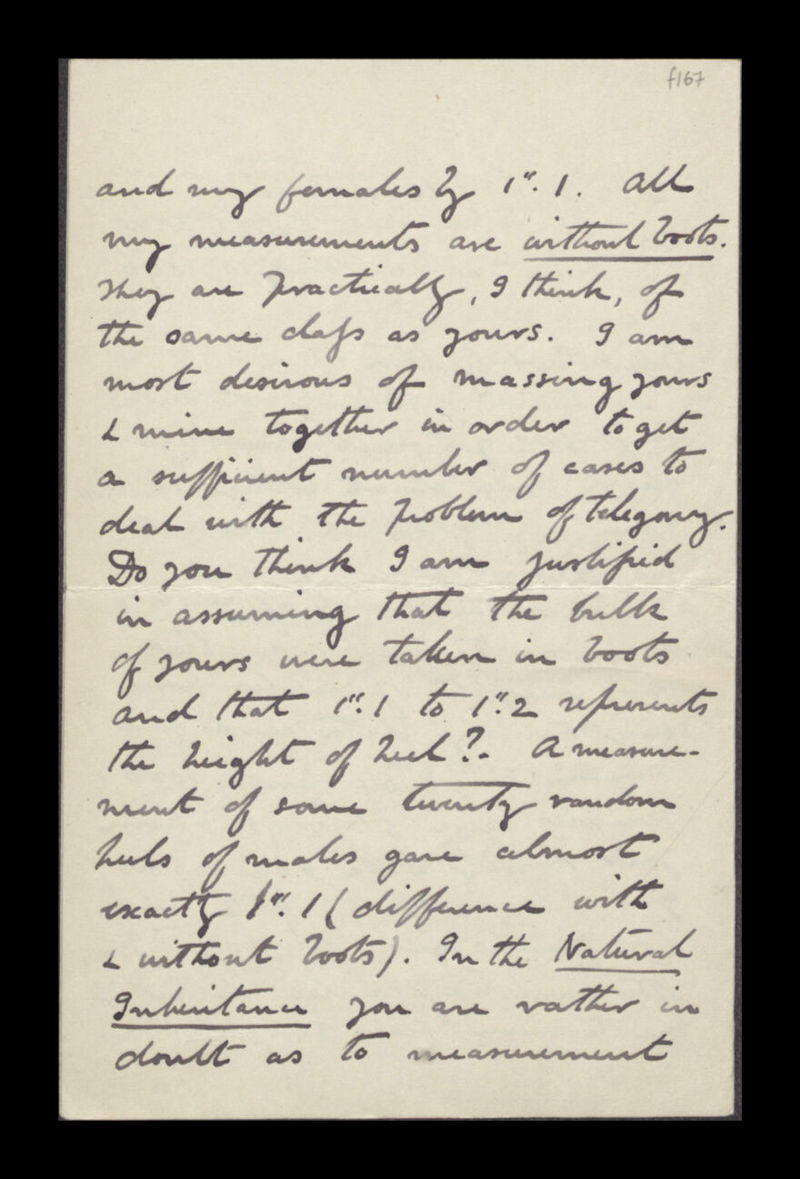 f167
and my females by 1".1. All
my measurements are without boots.
They are practically, I think, of
the same class as yours. I am
most desirous of massing yours
& mine together in order to get
a sufficient number of cases to
deal with the problem of telegony.
Do you think I am justified
in assuming that the bulk
of yours were taken in boots
and that 1".1 to 1".2 represents
the height of heel?. A measure-
ment of some twenty random
heels of males gave almost
exactly 1".1 (difference with
& without boots). In the Natural
Inheritance you are rather in
doubt as to measurement